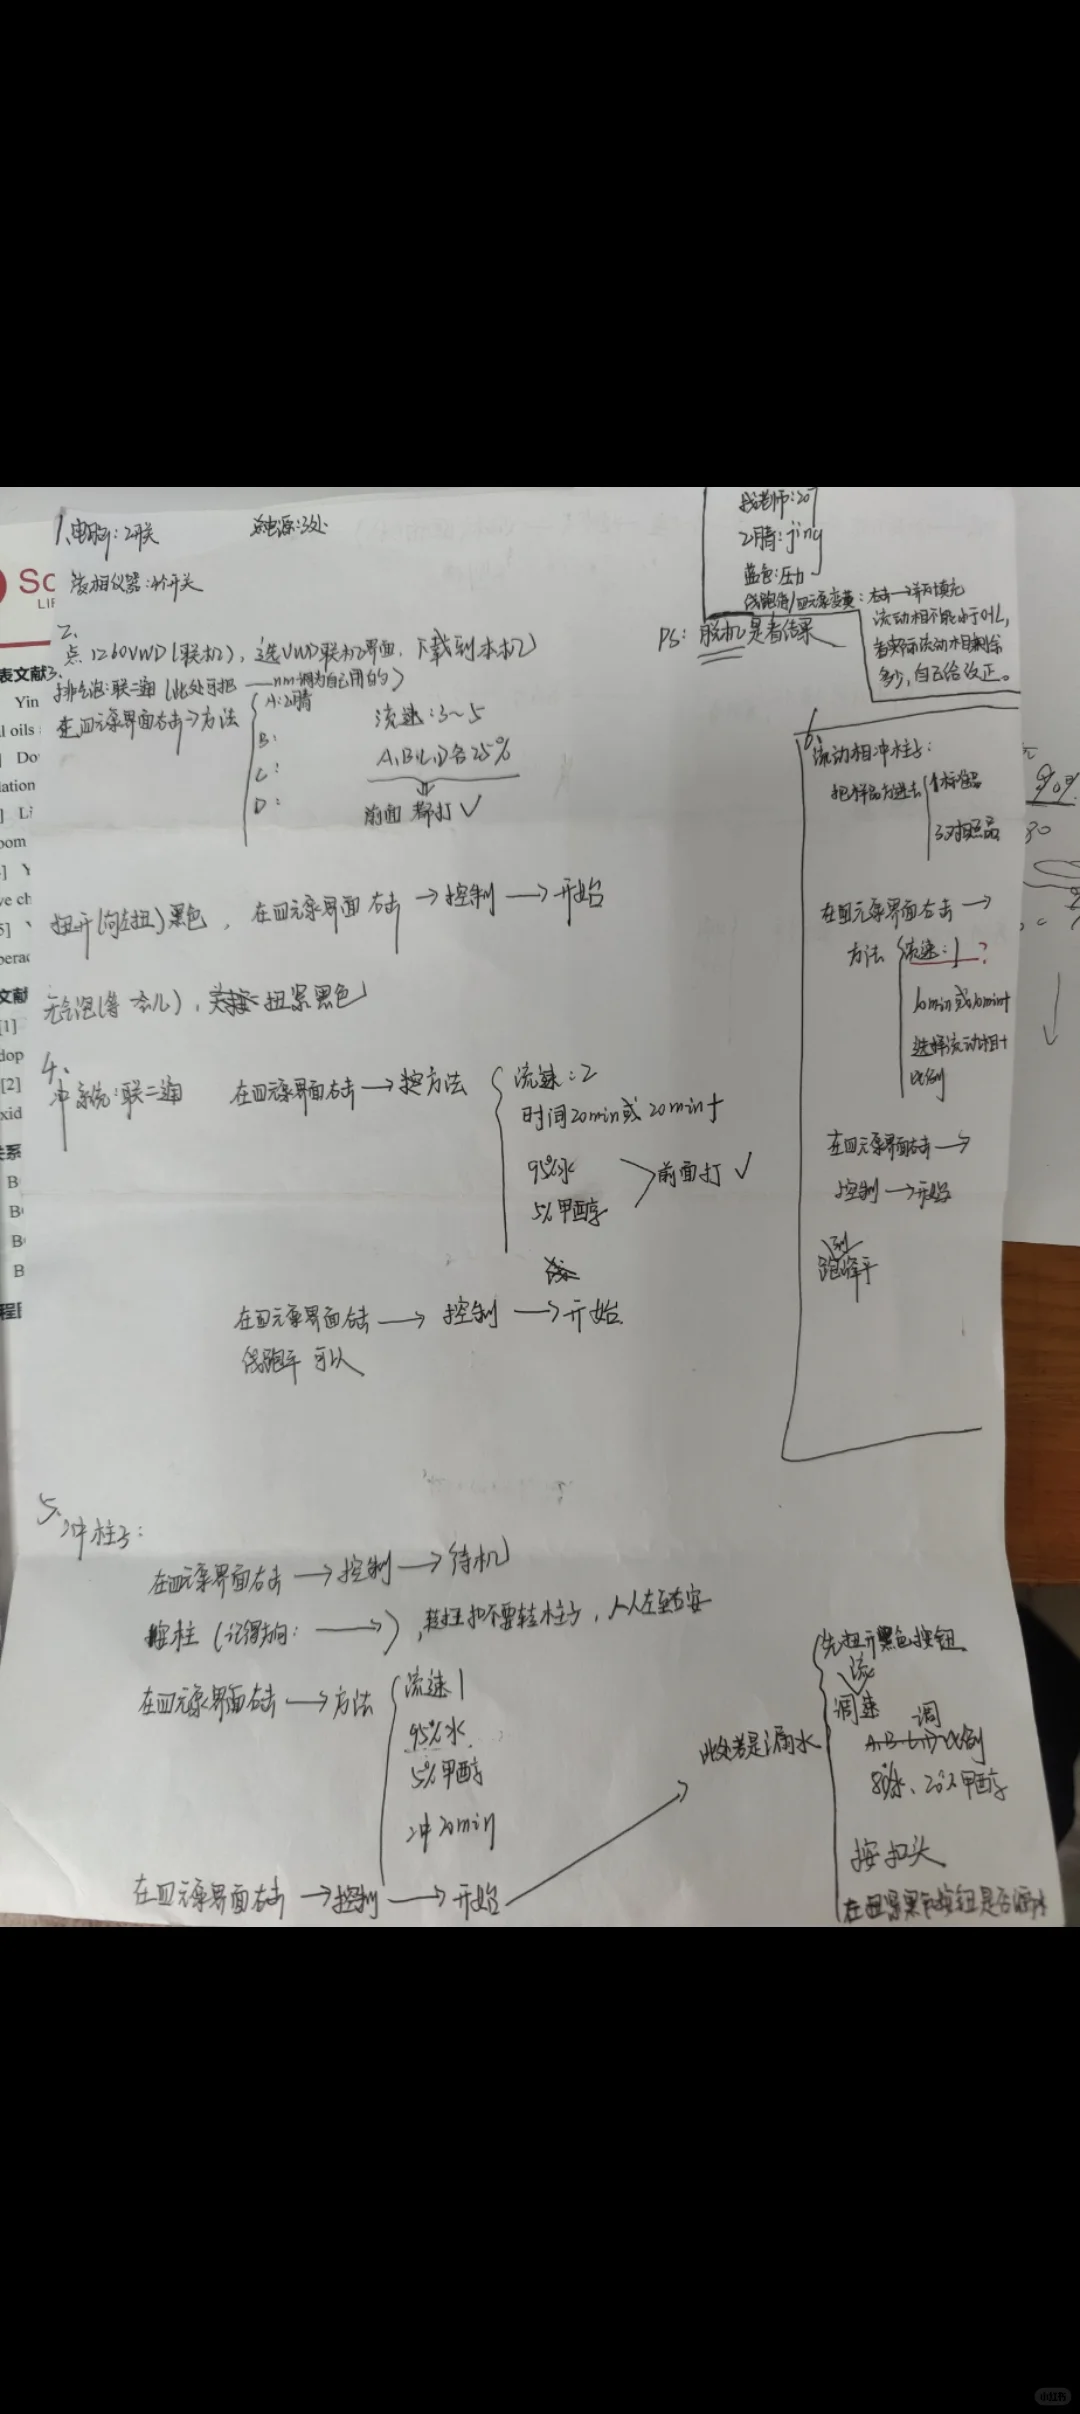 1、电脑：2开关
总电源：3处
液相仪器：4个开关
2、
点1260VWD(联机)，选VWD联机界面，下载到本机
3、
排气泡：联二通(此处可把——nm调为自己用的)
在四元泵界面右击→方法
A：乙腈
B：
C：
D：
流速：3~5
A、B、C、D各25%
前面都打✓
扭开(向左扭)黑色，在四元泵界面右击→控制→开始
无气泡(等一会儿)，扭紧黑色
4、
冲系统：联二通
在四元泵界面右击→方法
流速：2
时间20min或20min+
95%水
5%甲醇
前面打✓
在四元泵界面右击→控制→开始
线跑平可以
5、
冲柱子：
在四元泵界面右击→控制→待机
接柱(记得方向：→)，转扭扣不要转柱子，从左至右安
在四元泵界面右击→方法
流速1
95%水
5%甲醇
冲20min
在四元泵界面右击→控制→开始
此处若是漏水
先扭开黑色按钮
调流速
调
A B C D比例
80%水、20%甲醇
按扣头
在扭紧黑色按钮是否漏水
老师：207
乙腈：jing
蓝色：压力
四元泵变黄：右击→瓶填充
流动相不能小于0.1L，
看实际流动相剩余
多少，自己给改正。
PS：脱机是看结果
6、
流动相冲柱子：
把样品放进去
1标准品
3对照品
在四元泵界面右击→
方法
流速：1？
10min或10min+
选择流动相+
比例
在四元泵界面右击→
控制→开始
跑到峰平
Sc
LIF
表文献
Yin
l oils
Do
lation
Li
oom
Y
ve ch
5]
文献
[1]
dop
[2]
xid
关系
B
B
B
B
小红书